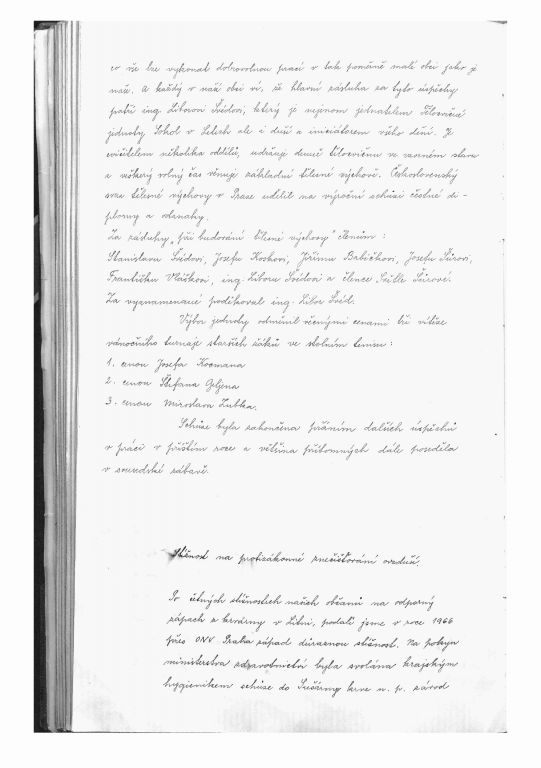 co vše lze vykonat dobrovolnou prací v tak poměrně malé obci jako je
naše. A každý v naší obci ví, že hlavní zásluha za tyto úspěchy
patří ing. Liborovi Švédovi, který je nejenom jednatelem Tělovýchné
jednoty Sokol v Letech ale i duší a iniciátorem všeho dění. Je
cvičitelem několika oddílů, udržuje denně tělocvičnu ve vzorném stavu
a veškerý volný čas věnuje základní tělesné výchově. Československý
svaz tělesné výchovy v Praze udělil na výroční schůzi čestné di-
plomy a odznaky.
Za zásluhy „při budování tělesné výchovy" členům:
Stanislavu Švédovi, Josefu Kočkovi, Jiřímu Babičkovi, Josefu Šůrovi,
Františku Vláškovi, ing. Liboru Švédovi a člence Sůrové.
Za vyznamenané poděkoval ing. Libor Švéd.
Výbor jednoty odměnil věcnými cenami tři vítěze
vánočního turnaje starších žáků ve stolním tenisu:
1. cenou Josefa Kocmana
2. cenou Štefana Geljena
3. cenou Miroslava Zubka.
Schůze byla zakončena přáním dalších úspěchů
v práci v příštím roce a většina přítomných dále poseděla
v sousedské zábavě.
Stížnost na protizákonné znečišťování ovzduší.
Po četných stížnostech našich občanů na odporný
zápach z krvárny v Litni, podali jsme v roce 1966
přes ONV Praha západ důraznou stížnost. Na pokyn
ministerstva zdravotnictví byla svolána krajským
hygienikem schůze do Sušárny krve n. p. závod